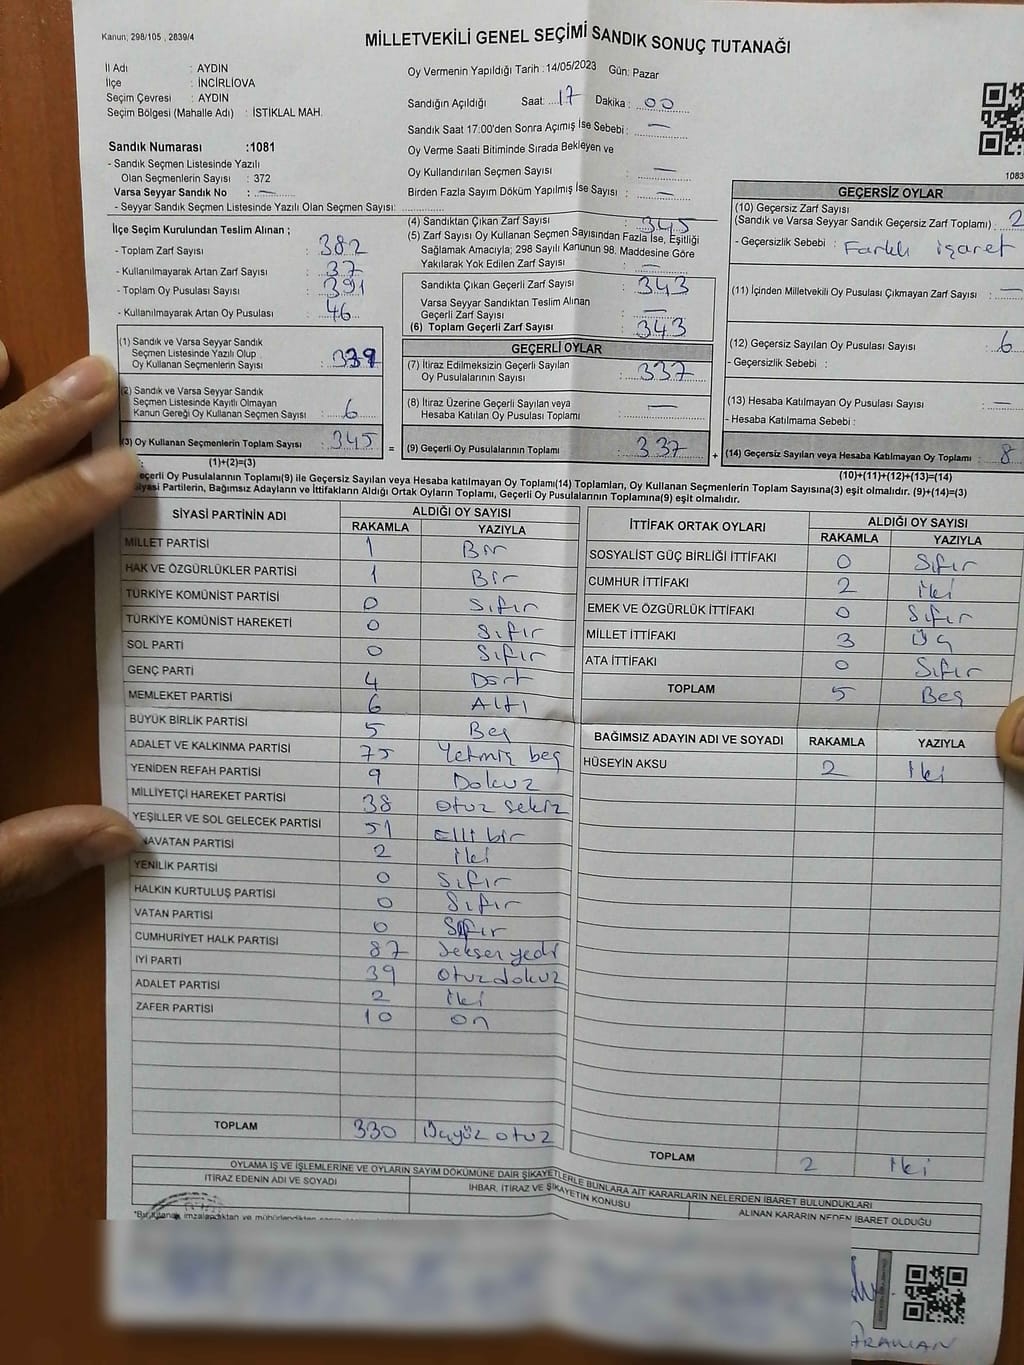 Kanun; 298/105 , 2839/4
MİLLETVEKİLİ GENEL SEÇİMİ SANDIK SONUÇ TUTANAĞI
İl Adı : AYDIN
İlçe : İNCİRLİOVA
Seçim Çevresi : AYDIN
Seçim Bölgesi (Mahalle Adı) : İSTİKLAL MAH.
Oy Vermenin Yapıldığı Tarih :14/05/2023 Gün: Pazar
Sandığın Açıldığı Saat: 17 Dakika : 00
Sandık Saat 17:00'den Sonra Açmış İse Sebebi : —
Oy Verme Saati Bitiminde Sırada Bekleyen ve
Oy Kullandırılan Seçmen Sayısı : —
Birden Fazla Sayım Döküm Yapılmış İse Sayısı : —
Sandık Numarası :1081
- Sandık Seçmen Listesinde Yazılı
Olan Seçmenlerin Sayısı : 372
Varsa Seyyar Sandık No : —
- Seyyar Sandık Seçmen Listesinde Yazılı Olan Seçmen Sayısı:
1083
İlçe Seçim Kurulundan Teslim Alınan ;
- Toplam Zarf Sayısı : 382
- Kullanılmayarak Artan Zarf Sayısı : 37
- Toplam Oy Pusulası Sayısı : 391
- Kullanılmayarak Artan Oy Pusulası : 46
(1) Sandık ve Varsa Seyyar Sandık
Seçmen Listesinde Yazılı Olup
Oy Kullanan Seçmenlerin Sayısı : 339
(2) Sandık ve Varsa Seyyar Sandık
Seçmen Listesinde Kayıtlı Olmayan
Kanun Gereği Oy Kullanan Seçmen Sayısı : 6
(3) Oy Kullanan Seçmenlerin Toplam Sayısı : 345 =
(1)+(2)=(3)
(4) Sandıktan Çıkan Zarf Sayısı : 345
(5) Zarf Sayısı Oy Kullanan Seçmen Sayısından Fazla İse, Eşitliği
Sağlamak Amacıyla; 298 Sayılı Kanunun 98. Maddesine Göre
Yakılarak Yok Edilen Zarf Sayısı : —
Sandıkta Çıkan Geçerli Zarf Sayısı : 343
Varsa Seyyar Sandıktan Teslim Alınan
Geçerli Zarf Sayısı : —
(6) Toplam Geçerli Zarf Sayısı : 343
GEÇERLİ OYLAR
(7) İtiraz Edilmeksizin Geçerli Sayılan
Oy Pusulalarının Sayısı : 337
(8) İtiraz Üzerine Geçerli Sayılan veya
Hesaba Katılan Oy Pusulası Toplamı : —
(9) Geçerli Oy Pusulalarının Toplamı : 337 +
GEÇERSİZ OYLAR
(10) Geçersiz Zarf Sayısı
(Sandık ve Varsa Seyyar Sandık Geçersiz Zarf Toplamı) : 2
- Geçersizlik Sebebi : Farklı işaret
(11) İçinden Milletvekili Oy Pusulası Çıkmayan Zarf Sayısı : —
(12) Geçersiz Sayılan Oy Pusulası Sayısı : 6
- Geçersizlik Sebebi :
(13) Hesaba Katılmayan Oy Pusulası Sayısı : —
- Hesaba Katılmama Sebebi :
(14) Geçersiz Sayılan veya Hesaba Katılmayan Oy Toplamı : 8
(10)+(11)+(12)+(13)=(14)
eçerli Oy Pusulalarının Toplamı(9) ile Geçersiz Sayılan veya Hesaba Katılmayan Oy Toplamı(14) Toplamları, Oy Kullanan Seçmenlerin Toplam Sayısına(3) eşit olmalıdır. (9)+(14)=(3)
iyasi Partilerin, Bağımsız Adayların ve İttifakların Aldığı Ortak Oyların Toplamı, Geçerli Oy Pusulalarının Toplamına(9) eşit olmalıdır.
SİYASİ PARTİNİN ADI ALDIĞI OY SAYISI
RAKAMLA YAZIYLA
MİLLET PARTİSİ 1 Bir
HAK VE ÖZGÜRLÜKLER PARTİSİ 1 Bir
TÜRKİYE KOMÜNİST PARTİSİ 0 Sıfır
TÜRKİYE KOMÜNİST HAREKETİ 0 Sıfır
SOL PARTİ 0 Sıfır
GENÇ PARTİ 4 Dört
MEMLEKET PARTİSİ 6 Altı
BÜYÜK BİRLİK PARTİSİ 5 Beş
ADALET VE KALKINMA PARTİSİ 75 Yetmiş beş
YENİDEN REFAH PARTİSİ 9 Dokuz
MİLLİYETÇİ HAREKET PARTİSİ 38 otuz sekiz
YEŞİLLER VE SOL GELECEK PARTİSİ 51 Elli bir
NAVATAN PARTİSİ 2 iki
YENİLİK PARTİSİ 0 Sıfır
HALKIN KURTULUŞ PARTİSİ 0 Sıfır
VATAN PARTİSİ 0 Sıfır
CUMHURİYET HALK PARTİSİ 87 Seksen yedi
İYİ PARTİ 39 otuz dokuz
ADALET PARTİSİ 2 iki
ZAFER PARTİSİ 10 on
TOPLAM 330 Üçyüz otuz
İTTİFAK ORTAK OYLARI ALDIĞI OY SAYISI
RAKAMLA YAZIYLA
SOSYALİST GÜÇ BİRLİĞİ İTTİFAKI 0 Sıfır
CUMHUR İTTİFAKI 2 iki
EMEK VE ÖZGÜRLÜK İTTİFAKI 0 Sıfır
MİLLET İTTİFAKI 3 Üç
ATA İTTİFAKI 0 Sıfır
TOPLAM 5 Beş
BAĞIMSIZ ADAYIN ADI VE SOYADI RAKAMLA YAZIYLA
HÜSEYİN AKSU 2 iki
TOPLAM 2 iki
OYLAMA İŞ VE İŞLEMLERİNE VE OYLARIN SAYIM DÖKÜMÜNE DAİR ŞİKAYETLERLE BUNLARA AİT KARARLARIN NELERDEN İBARET BULUNDUKLARI
İTİRAZ EDENİN ADI VE SOYADI İHBAR, İTİRAZ VE ŞİKAYETİN KONUSU ALINAN KARARIN NEDEN İBARET OLDUĞU